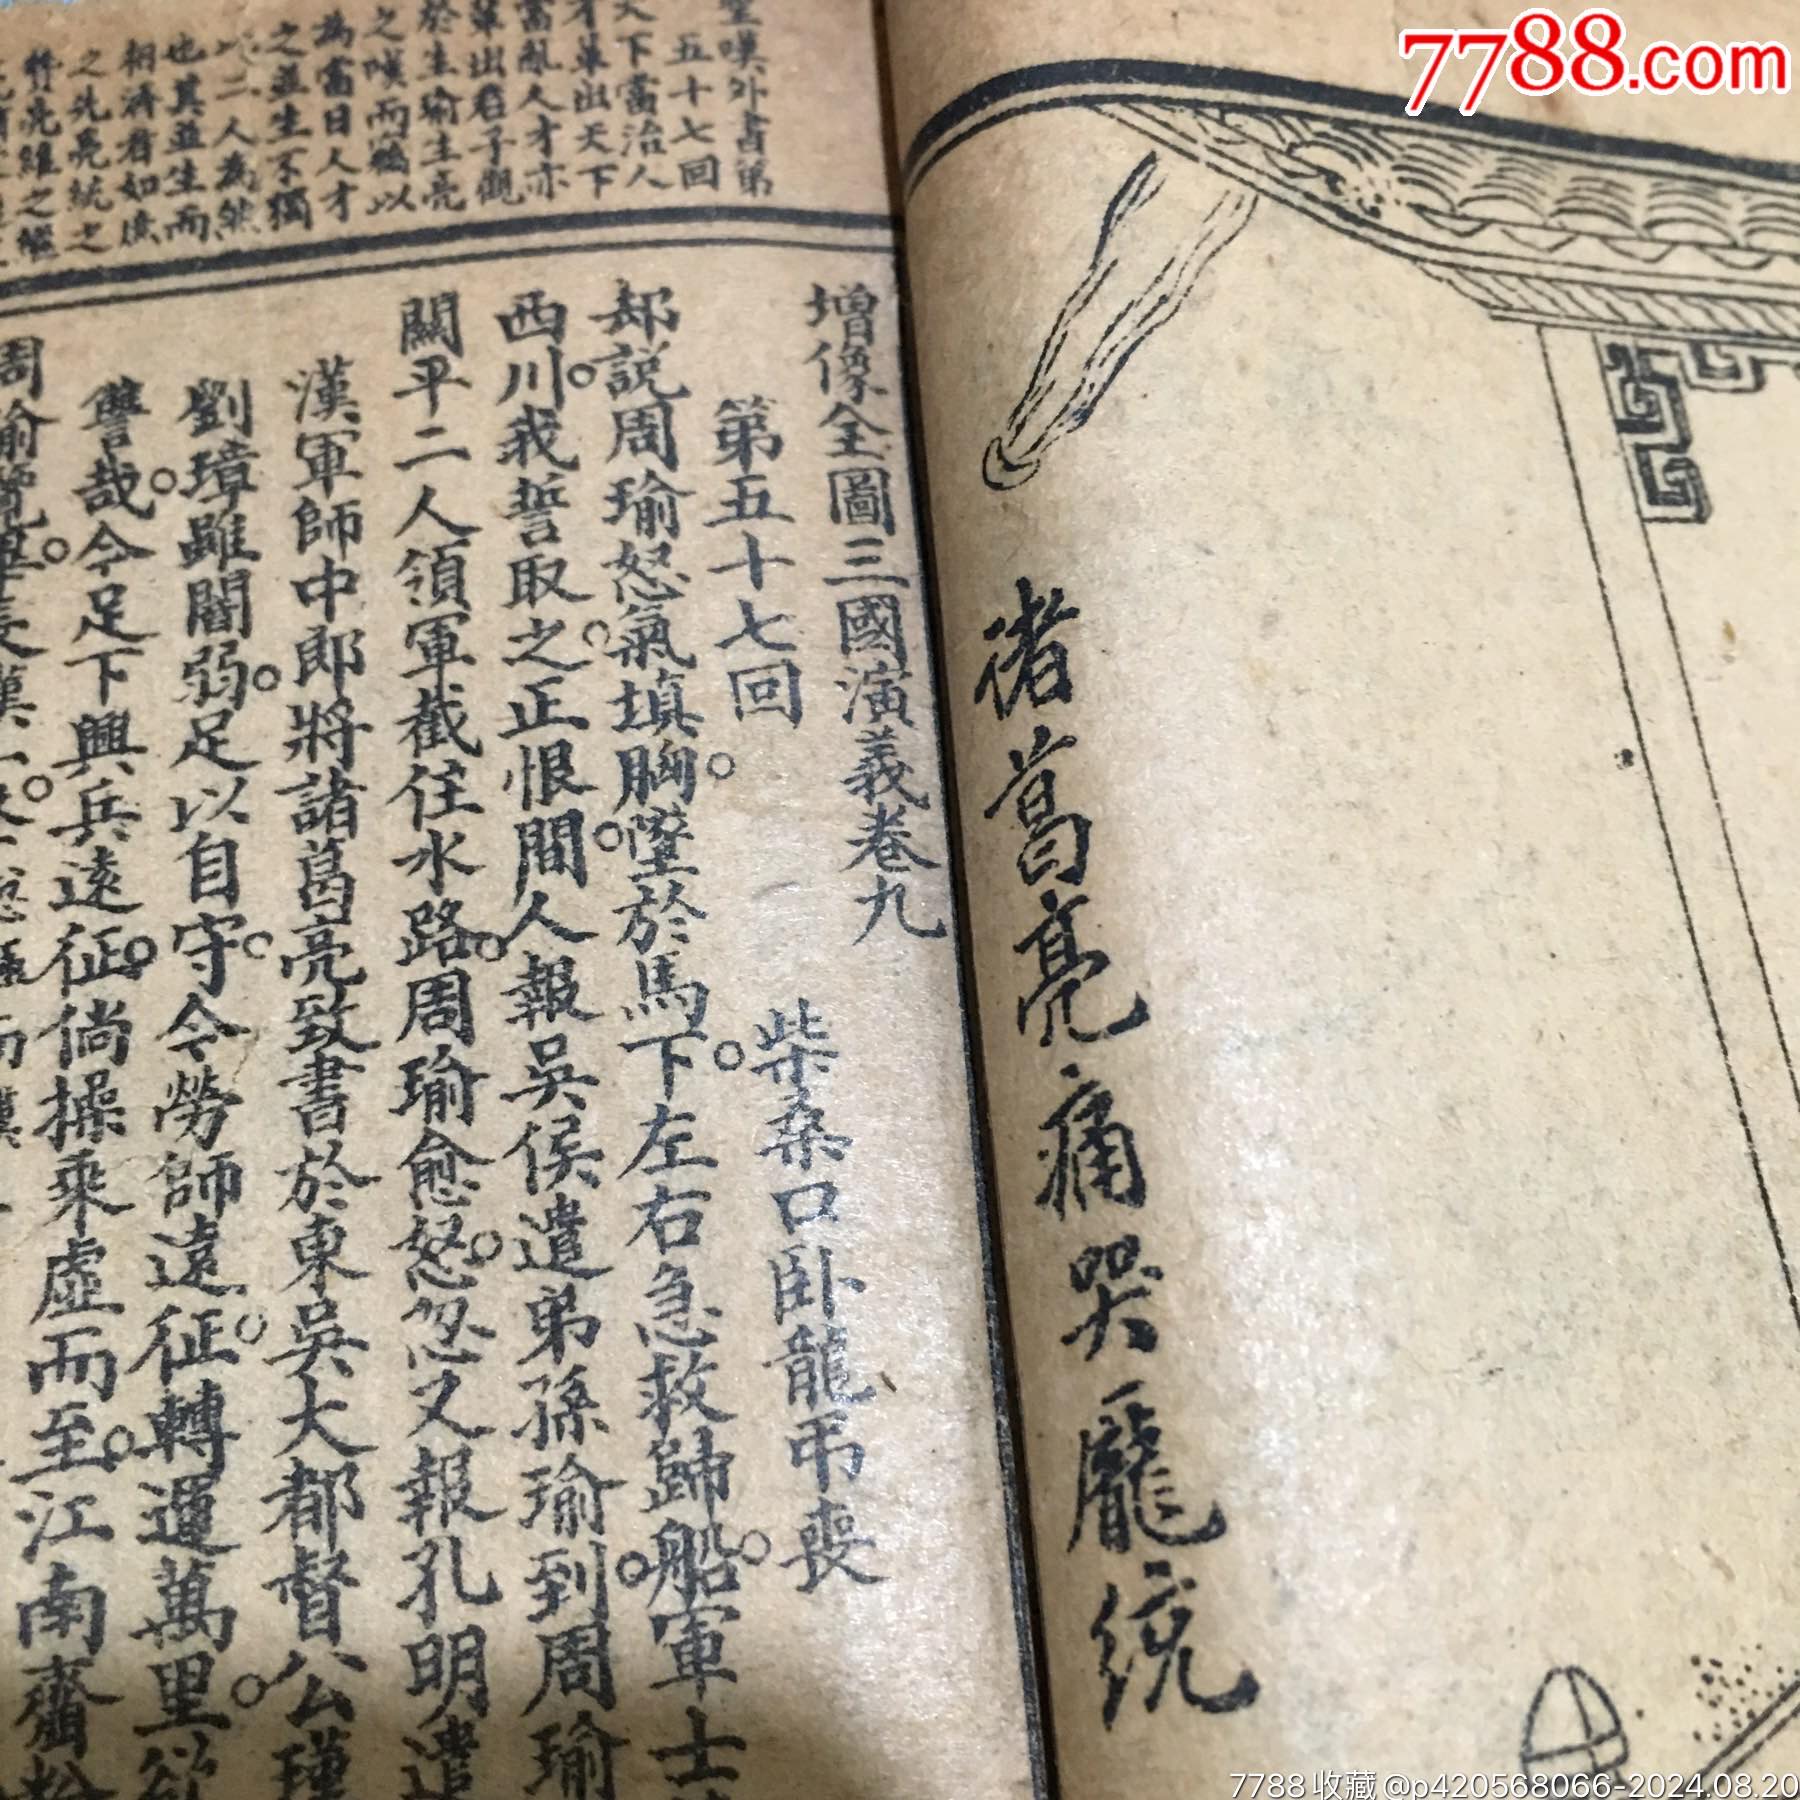 7788.com
諸葛亮痛哭龐統
聖嘆外書第
五十七回
天下當治人
才輩出天下
當亂人才亦
輩出君子觀
於生瑜生亮
之嘆而竊以
為當日人才
之並生不獨
二人為然
也其並生而
相濟者如庶
之先亮統之
增像全圖三國演義卷九
第五十七回 柴桑口卧龍弔喪
却説周瑜怒氣填胸墜於馬下左右急救歸船軍士
西川我誓取之正恨間人報吳侯遣弟孫瑜到周瑜
關平二人領軍截住水路周瑜愈怒忽又報孔明遣
漢軍師中郎將諸葛亮致書於東吳大都督公瑾
劉璋雖闇弱足以自守今勞師遠征轉運萬里欲
譬哉今足下興兵遠征倘操乘虛而至江南齏粉
周瑜覽畢長嘆
7788收藏@p420568066-2024.08.20